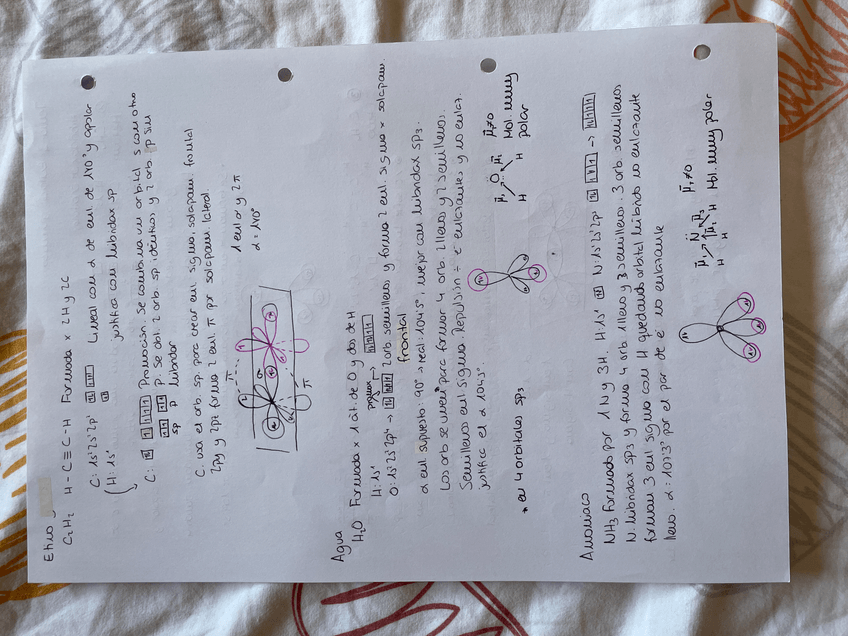 Etino
C₂H₂ H-C≡C-H Formada x 2H y 2C
C: 1s²2s²2p² Lineal con α de enl. de 180° y apolar
H: 1s¹ justifica con hibridax sp
C: Promoción. Se combina un orbital s con otro
p. Se obti. 2 orb. sp idénticos y 2 orb. p sin
sp p hibridar
C. usa el orb. sp para crear enl. sigma. solapam. frontal
2py y 2pz forma 2 enl π por solapam. lateral.
π
1 enl σ y 2π
α = 180°
σ
π
Agua
H₂O Formada x 1 át. de O y dos de H
H: 1s¹
O: 1s²2s²2p⁴ → 2 orb semillenos y forma 2 enl. sigma x solapam.
frontal
α enl supuesto: 90° → real: 104'5°, mejor con hibridax sp3.
Los orb se unen* para formar 4 orb. 2 llenos y 2 semillenos.
Semillenos enl sigma. Repulsión ÷ e⁻ enlazantes y no enlaz.
justifica el α 104'5°.
* en 4 orbitales sp3
μ̄₁ O μ̄₁ μ̄≠0
H H Mol. muy
polar
Amoniaco
NH₃ Formado por 1N y 3H. H: 1s¹ N: 1s²2s²2p³ →
N. hibridax sp3 y forma 4 orb. 1 lleno y 3 semillenos. 3 orb. semillenos
forman 3 enl sigma con H quedando orbital híbrido no enlazante
lleno. α=107'3° por el par de e⁻ no enlazante
μ̄₁ N μ̄₁ μ̄≠0
H μ̄₁ H Mol. muy polar
H